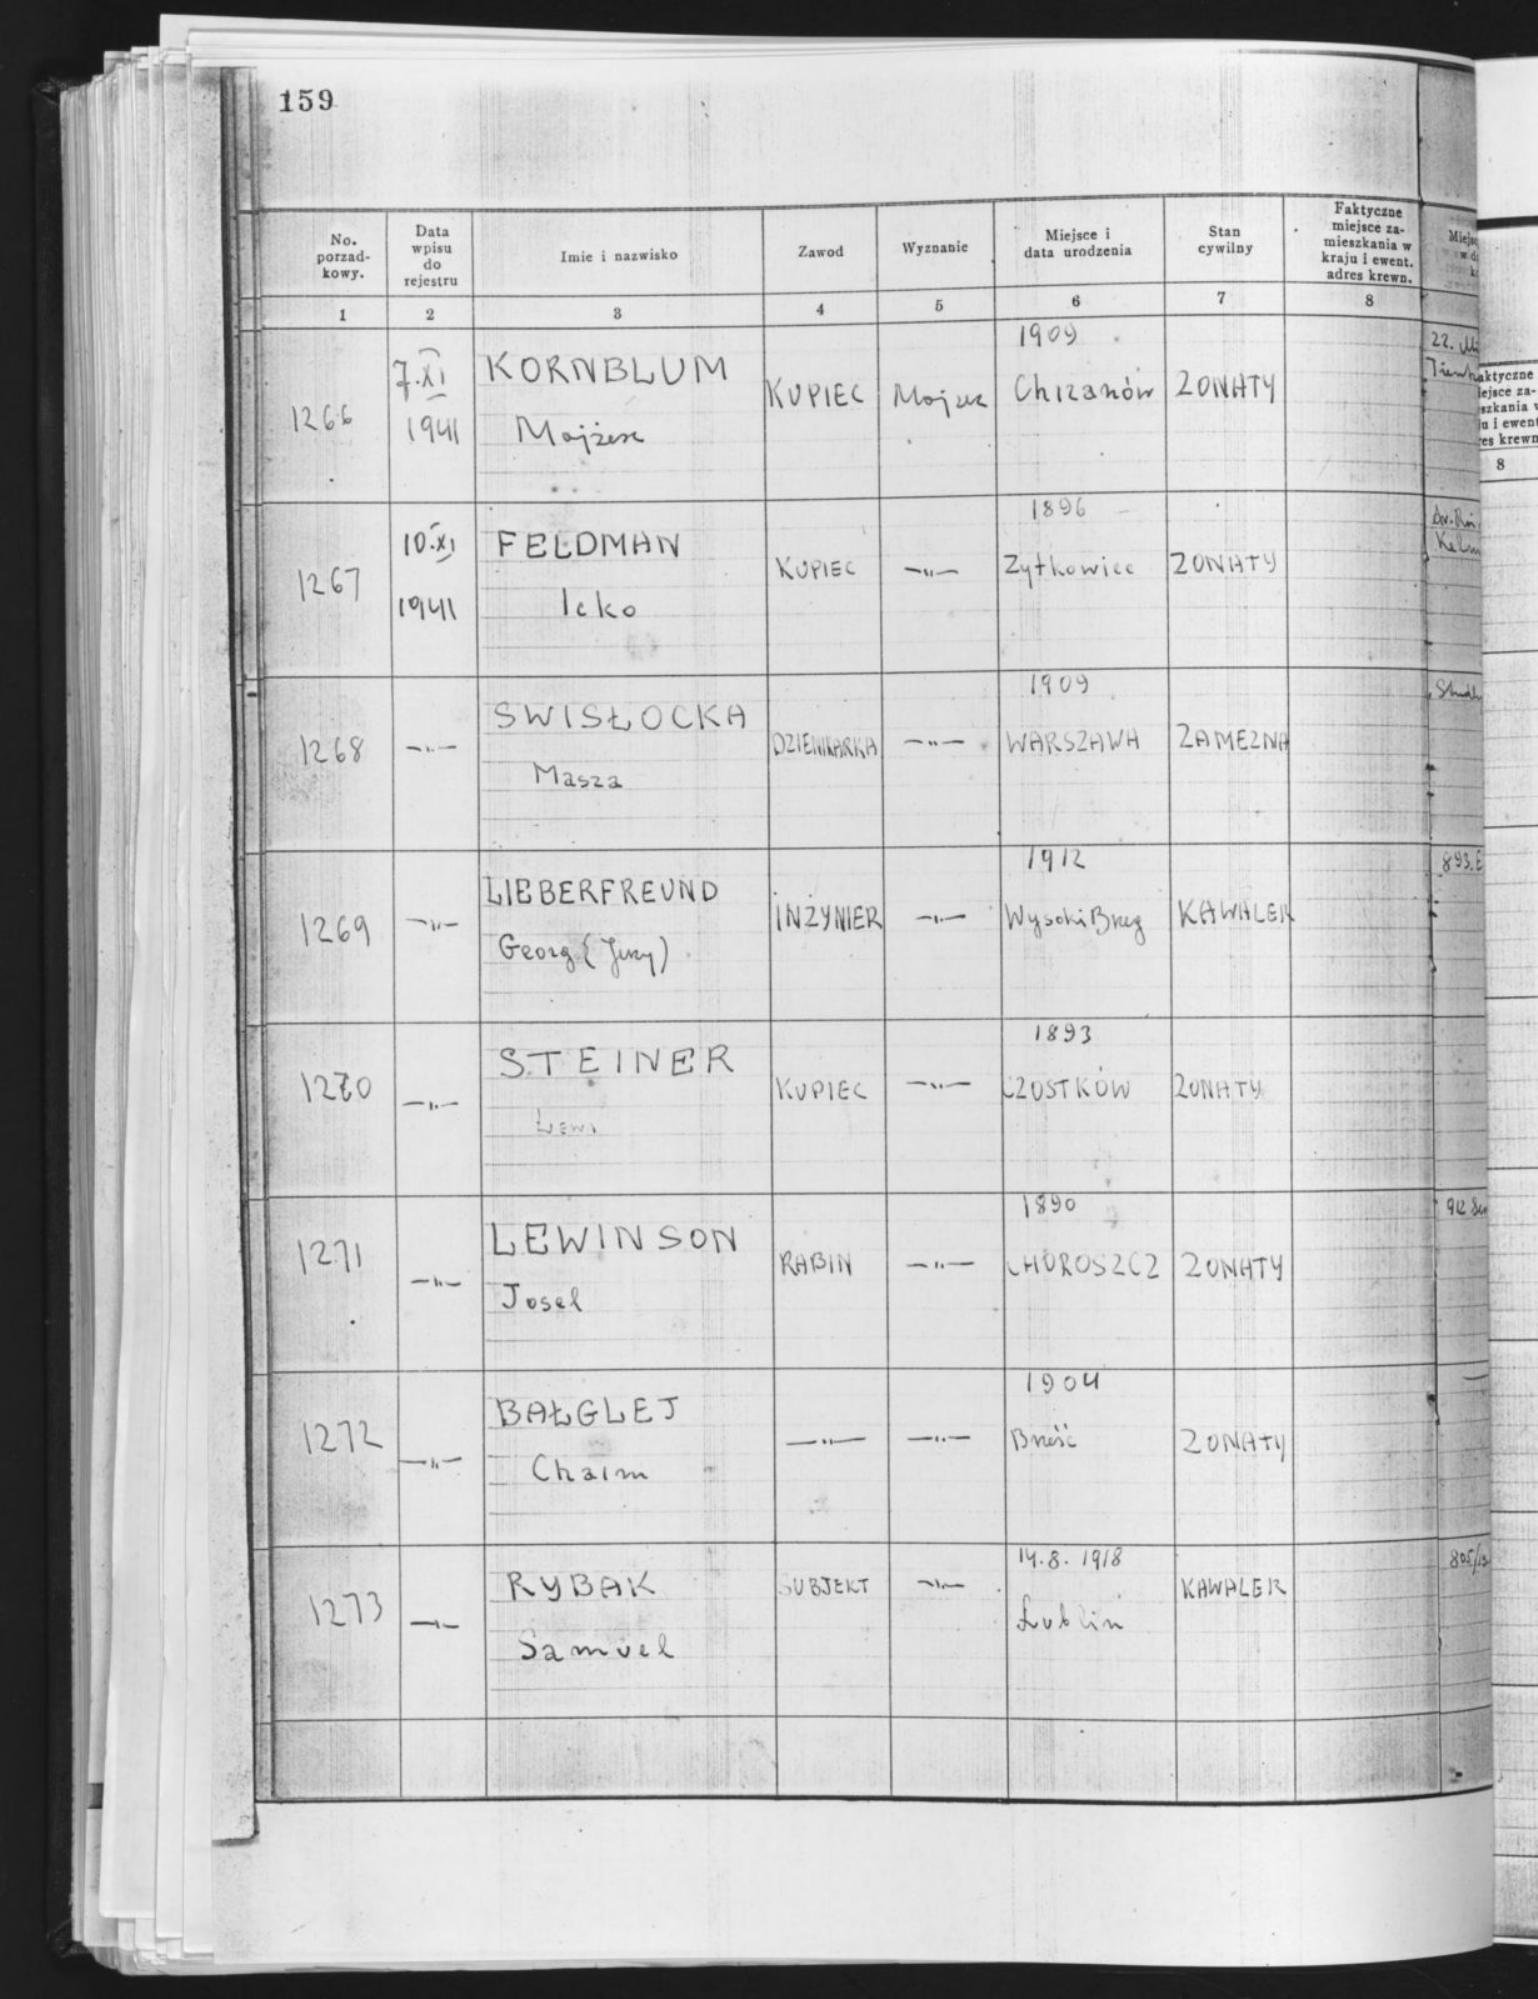 159
No. porzad- kowy.
Data wpisu do rejestru
Imie i nazwisko
Zawod
Wyznanie
Miejsce i data urodzenia
Stan cywilny
Faktyczne miejsce za- mieszkania w kraju i ewent. adres krewn.
1 2 3 4 5 6 7 8
1266
7.XI 1941
KORNBLUM
Mojżesz
KUPIEC
Mojżesz
1909
Chrzanów
ZONATY
22.
1267
10.XI 1941
FELDMAN
Icko
KUPIEC
—"—
1896
Zytkowice
ZONATY
1268
—"—
SWISŁOCKA
Masza
DZIENIKARKA
—"—
1909
WARSZAWA
ZAMEZNA
1269
—"—
LIEBERFREUND
Georg (Jerzy)
INŻYNIER
—"—
1912
Wysoki Brzeg
KAWALER
893.
1270
—"—
STEINER
Lewi
KUPIEC
—"—
1893
CZOSTKÓW
ZONATY
1271
—"—
LEWINSON
Josel
RABIN
—"—
1890
CHOROSZCZ
ZONATY
912
1272
—"—
BAŁGLEJ
Chaim
—"—
—"—
1904
Brześć
ZONATY
1273
—"—
RYBAK
Samuel
SUBJEKT
—"—
14.8.1918
Lublin
KAWALER
805/
aktyczne
iejsce za-
szkania w
u i ewent
res krewn
8